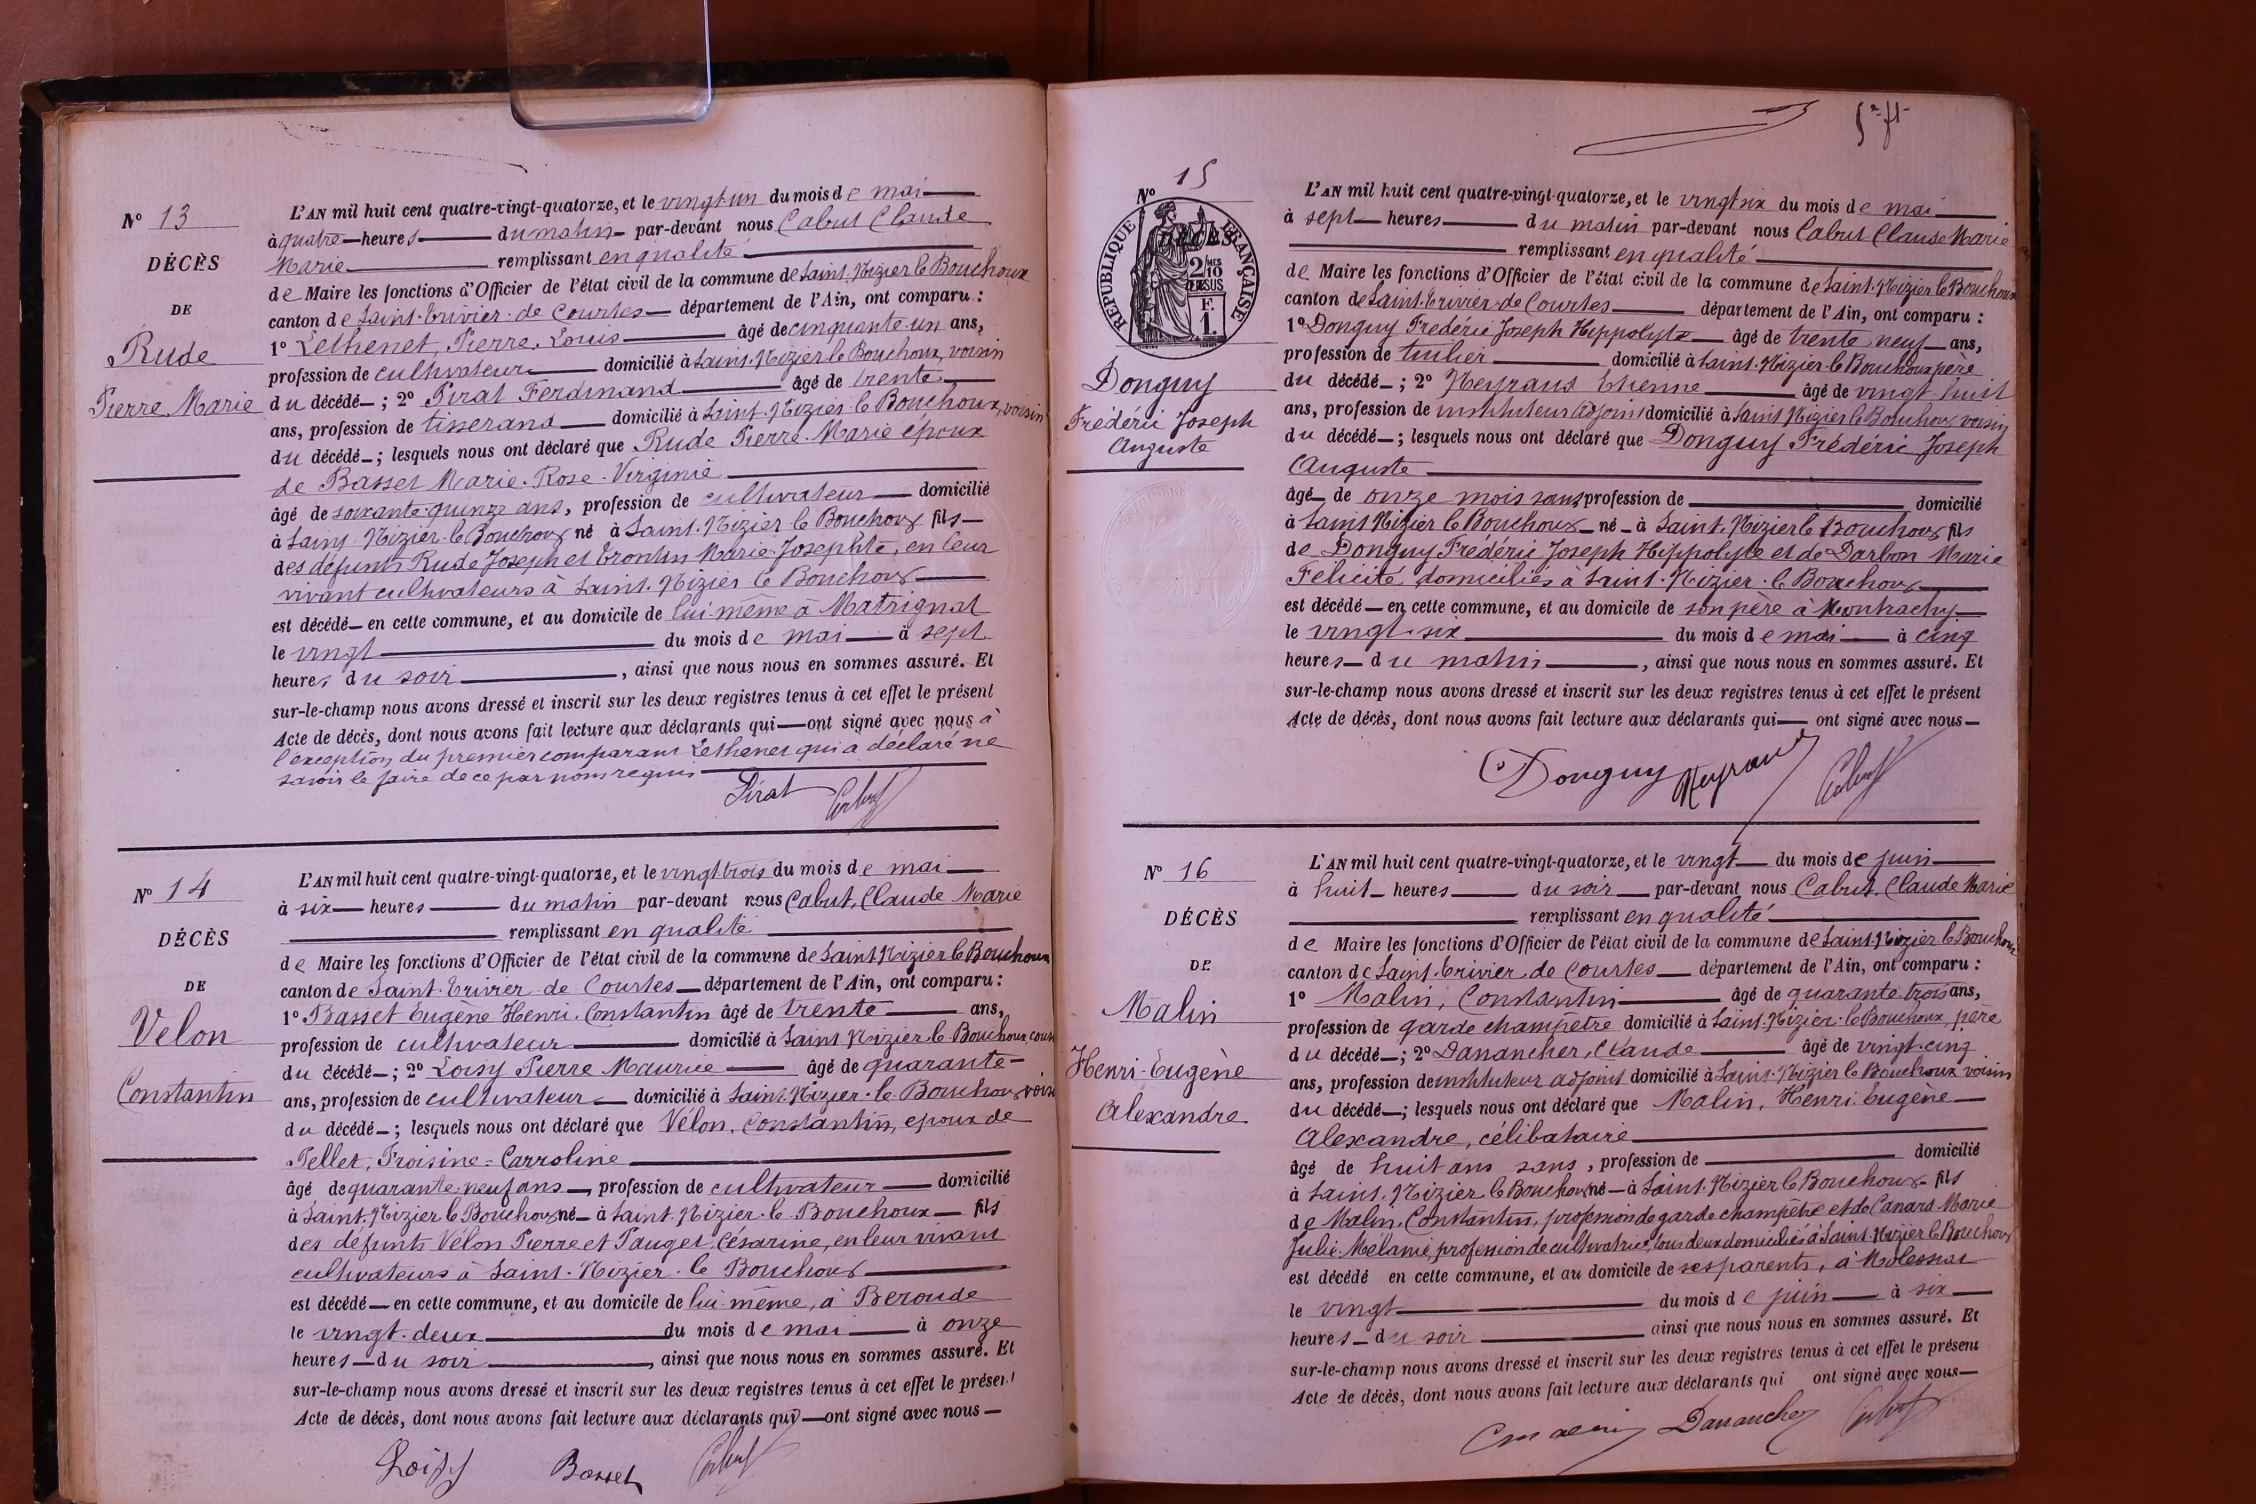 Nº 13
DÉCÈS
DE
Rude
Pierre Marie
L'AN mil huit cent quatre-vingt-quatorze, et le vingt un du mois de mai
à quatre heures du matin par-devant nous Cabut Claude
Marie remplissant en qualité
de Maire les fonctions d'Officier de l'état civil de la commune de Saint-Nizier le Bouchoux
canton de Saint-Trivier-de Courtes département de l'Ain, ont comparu :
1º Lethenet, Pierre, Louis âgé de cinquante un ans,
profession de cultivateur domicilié à Saint-Nizier le Bouchoux, voisin
du décédé ; 2º Pirat Ferdinand âgé de trente
ans, profession de tisserand domicilié à Saint-Nizier le Bouchoux, voisin
du décédé ; lesquels nous ont déclaré que Rude Pierre-Marie époux
de Basset Marie-Rose-Virginie
âgé de soixante-quinze ans, profession de cultivateur domicilié
à Saint-Nizier-le Bouchoux né à Saint-Nizier le Bouchoux fils
des défunts Rude Joseph et Trontin Marie-Josephte, en leur
vivant cultivateurs à Saint-Nizier le Bouchoux
est décédé en cette commune, et au domicile de lui-même à Matrignat
le vingt du mois de mai à sept
heures du soir, ainsi que nous nous en sommes assuré. Et
sur-le-champ nous avons dressé et inscrit sur les deux registres tenus à cet effet le présent
Acte de décès, dont nous avons fait lecture aux déclarants qui ont signé avec nous à
l'exception du premier comparant Lethenet qui a déclaré ne
savoir le faire de ce par nous requis
Pirat Cabut
Nº 14
DÉCÈS
DE
Velon
Constantin
L'AN mil huit cent quatre-vingt-quatorze, et le vingt trois du mois de mai
à six heures du matin par-devant nous Cabut, Claude Marie
remplissant en qualité
de Maire les fonctions d'Officier de l'état civil de la commune de Saint Nizier le Bouchoux
canton de Saint-Trivier-de Courtes département de l'Ain, ont comparu :
1º Basset Eugène Henri Constantin âgé de trente ans,
profession de cultivateur domicilié à Saint Nizier-le-Bouchoux,
du décédé ; 2º Loisy Pierre Maurice âgé de quarante
ans, profession de cultivateur domicilié à Saint-Nizier-le Bouchoux, voisin
du décédé ; lesquels nous ont déclaré que Vélon, Constantin, époux de
Pellet, Froisine-Carroline
âgé de quarante-neuf ans, profession de cultivateur domicilié
à Saint-Nizier le Bouchoux né à Saint-Nizier-le Bouchoux fils
des défunts Vélon Pierre et Pauget Césarine, en leur vivant
cultivateurs à Saint-Nizier-le Bouchoux
est décédé en cette commune, et au domicile de lui-même, à Beroude
le vingt-deux du mois de mai à onze
heures du soir, ainsi que nous nous en sommes assuré. Et
sur-le-champ nous avons dressé et inscrit sur les deux registres tenus à cet effet le présent
Acte de décès, dont nous avons fait lecture aux déclarants qui ont signé avec nous
Loisy Basset Cabut
Nº 15
RÉPUBLIQUE FRANÇAISE
DÉCÈS
2/10
EN SUS
F.
1.
Donguy
Frédéric Joseph
Auguste
L'AN mil huit cent quatre-vingt-quatorze, et le vingt six du mois de mai
à sept heures du matin par-devant nous Cabut Claude Marie
remplissant en qualité
de Maire les fonctions d'Officier de l'état civil de la commune de Saint-Nizier le Bouchoux
canton de Saint-Trivier-de Courtes département de l'Ain, ont comparu :
1º Donguy Frédéric Joseph Hippolyte âgé de trente neuf ans,
profession de tuilier domicilié à Saint-Nizier le Bouchoux père
du décédé ; 2º Neyraud Etienne âgé de vingt huit
ans, profession de instituteur adjoint domicilié à Saint Nizier le Bouchoux voisin
du décédé ; lesquels nous ont déclaré que Donguy Frédéric Joseph
Auguste
âgé de onze mois sans profession de domicilié
à Saint Nizier le Bouchoux né à Saint-Nizier le Bouchoux fils
de Donguy Frédéric Joseph Hippolyte et de Darbon Marie
Félicité, domiciliés à Saint-Nizier-le Bouchoux
est décédé en cette commune, et au domicile de son père à Montrachy
le vingt-six du mois de mai à cinq
heures du matin, ainsi que nous nous en sommes assuré. Et
sur-le-champ nous avons dressé et inscrit sur les deux registres tenus à cet effet le présent
Acte de décès, dont nous avons fait lecture aux déclarants qui ont signé avec nous
Donguy Neyraud Cabut
Nº 16
DÉCÈS
DE
Malin
Henri-Eugène
Alexandre
L'AN mil huit cent quatre-vingt-quatorze, et le vingt du mois de juin
à huit heures du soir par-devant nous Cabut, Claude Marie
remplissant en qualité
de Maire les fonctions d'Officier de l'état civil de la commune de Saint-Nizier le Bouchoux
canton de Saint-Trivier de Courtes département de l'Ain, ont comparu :
1º Malin, Constantin âgé de quarante-trois ans,
profession de garde champêtre domicilié à Saint-Nizier-le Bouchoux, père
du décédé ; 2º Danancher, Claude âgé de vingt-cinq
ans, profession de instituteur adjoint domicilié à Saint-Nizier le Bouchoux voisin
du décédé ; lesquels nous ont déclaré que Malin, Henri Eugène
Alexandre, célibataire
âgé de huit ans sans, profession de domicilié
à Saint-Nizier le Bouchoux né à Saint-Nizier le Bouchoux fils
de Malin, Constantin, profession de garde champêtre et de Canard Marie
Julie-Mélanie, profession de cultivatrice, tous deux domiciliés à Saint-Nizier le Bouchoux
est décédé en cette commune, et au domicile de ses parents, à Molessiat
le vingt du mois de juin à six
heures du soir ainsi que nous nous en sommes assuré. Et
sur-le-champ nous avons dressé et inscrit sur les deux registres tenus à cet effet le présent
Acte de décès, dont nous avons fait lecture aux déclarants qui ont signé avec nous
Malin Danancher Cabut